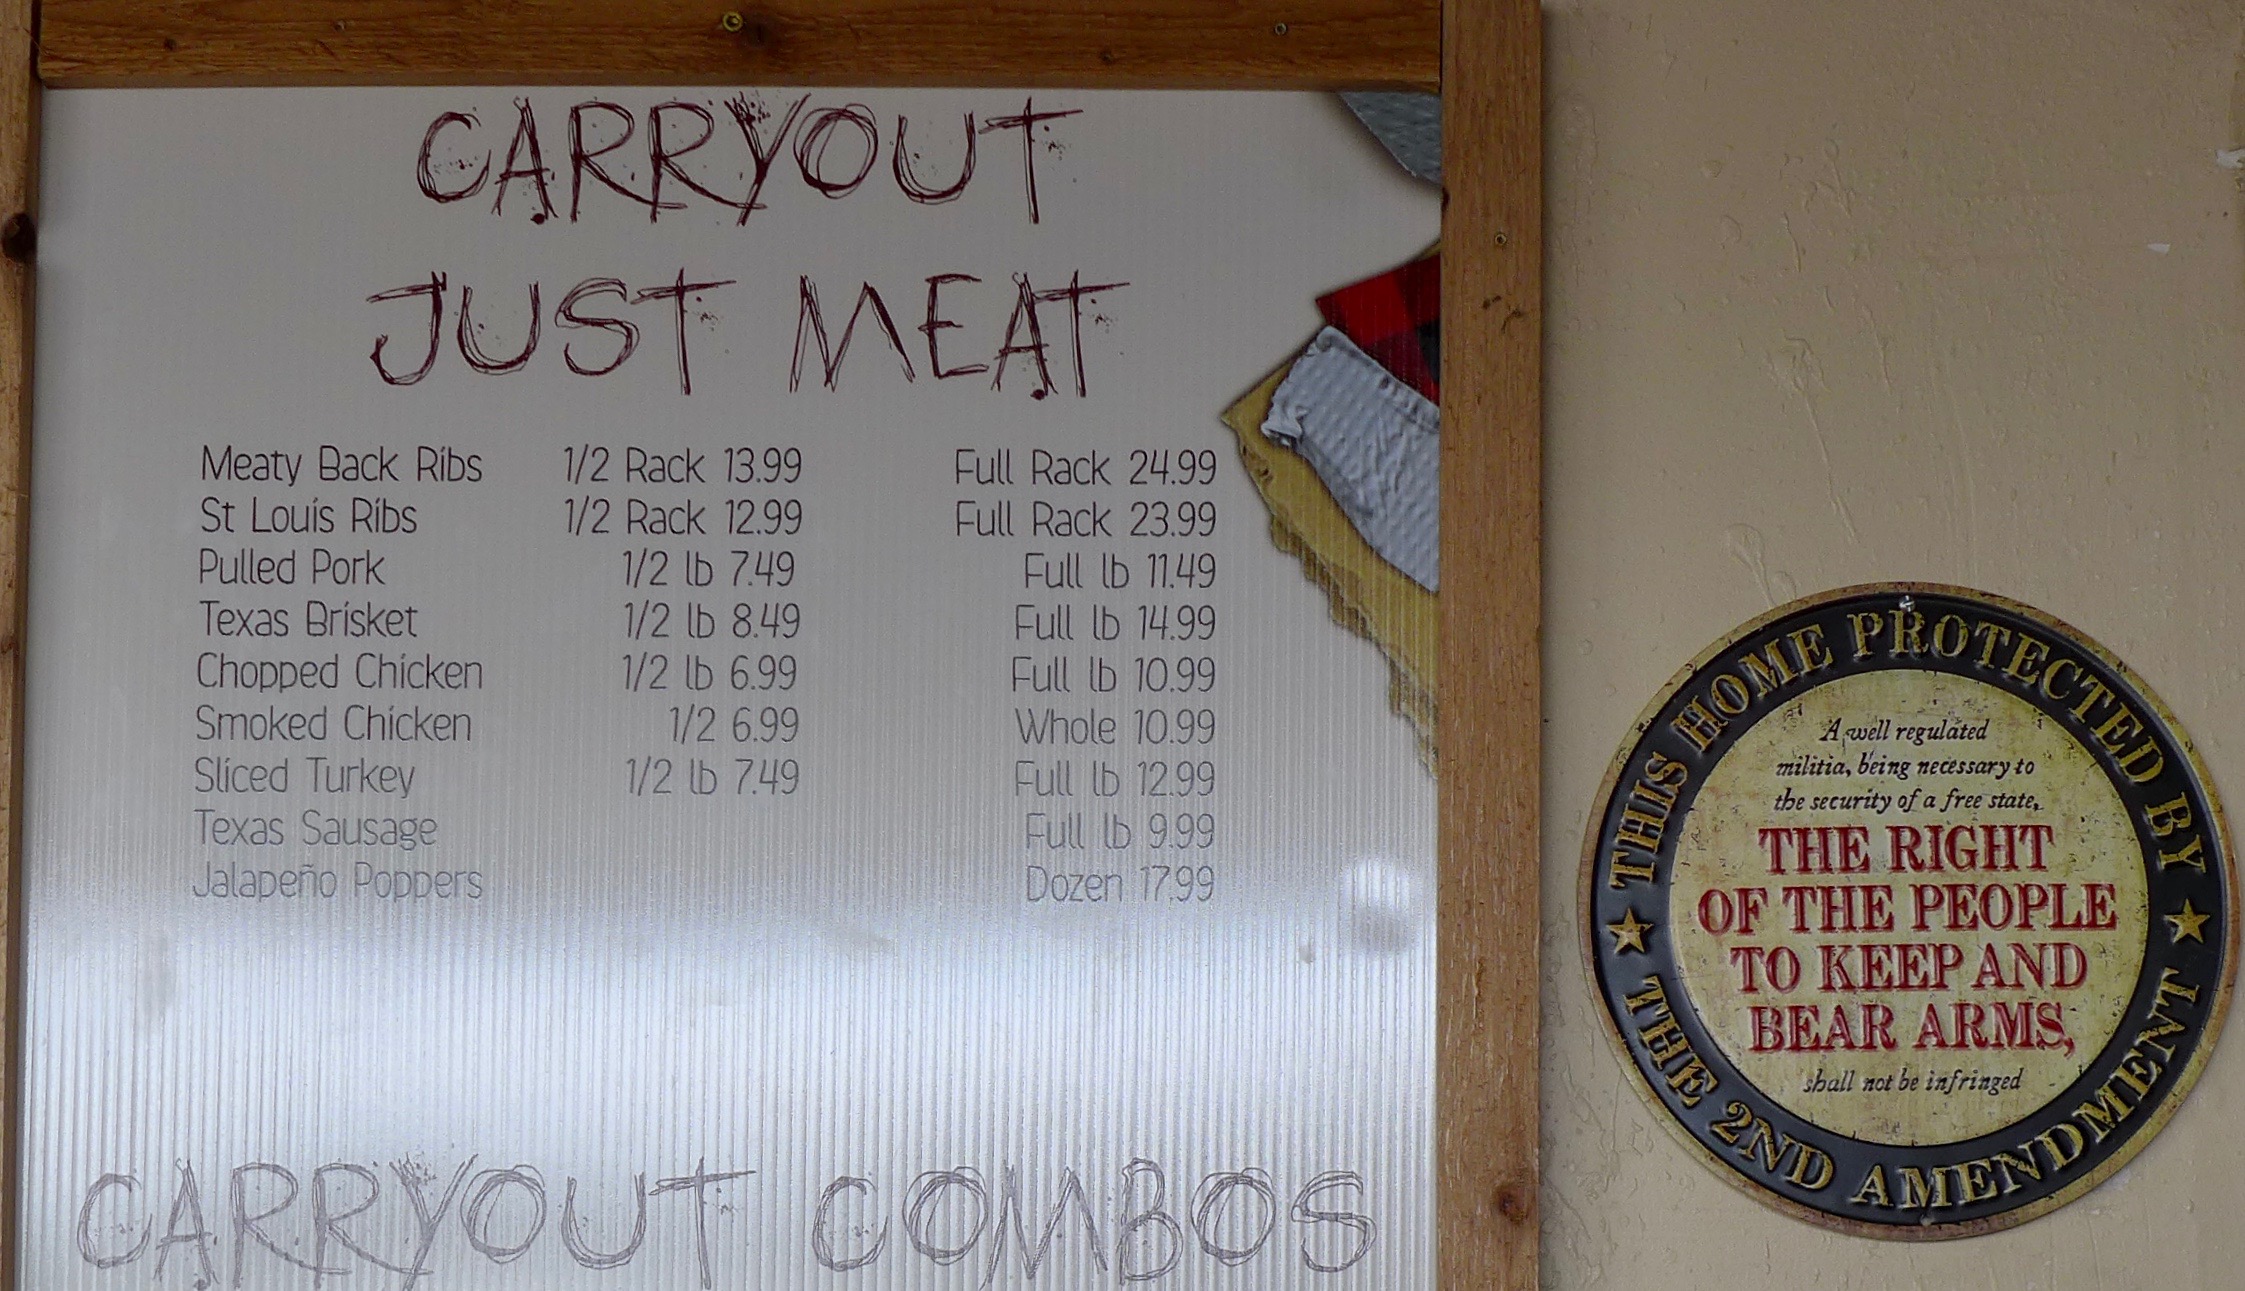 CARRYOUT
JUST MEAT
Meaty Back Ribs 1/2 Rack 13.99 Full Rack 24.99
St Louis Ribs 1/2 Rack 12.99 Full Rack 23.99
Pulled Pork 1/2 lb 7.49 Full lb 11.49
Texas Brisket 1/2 lb 8.49 Full lb 14.99
Chopped Chicken 1/2 lb 6.99 Full lb 10.99
Smoked Chicken 1/2 6.99 Whole 10.99
Sliced Turkey 1/2 lb 7.49 Full lb 12.99
Texas Sausage Full lb 9.99
Jalapeño Poppers Dozen 17.99
CARRYOUT COMBOS
THIS HOME PROTECTED BY
A well regulated
militia, being necessary to
the security of a free state,
THE RIGHT
OF THE PEOPLE
TO KEEP AND
BEAR ARMS,
shall not be infringed
THE 2ND AMENDMENT